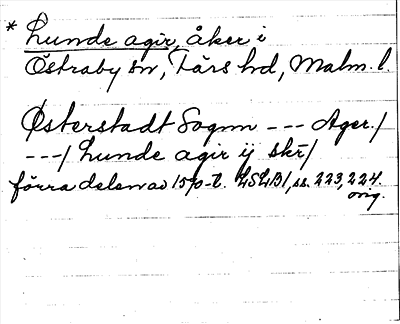 * Lunde agir, åker i
Östraby sn, Färs hd, Malm. l.
Østerstadt Sognn --- Ager./
---/ Lunde agir ij skr/
förra delen av 1570-t. LSLB1, ss. 223, 224.
orig.